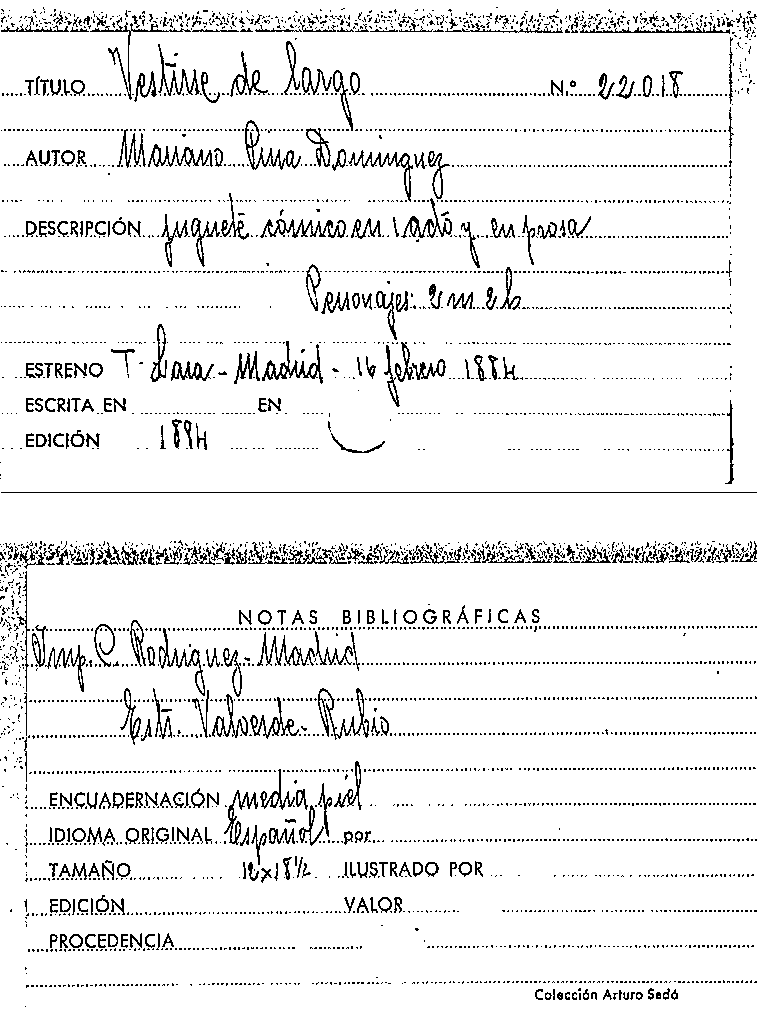 TÍTULO Vestirse de largo N.º 22018
AUTOR Mariano Pina Dominguez
DESCRIPCIÓN juguete cómico en 1 acto y en prosa
Personajes: 2 m 2 h
ESTRENO T. Lara - Madrid - 16 febrero 1884
ESCRITA EN EN
EDICIÓN 1894
NOTAS BIBLIOGRÁFICAS
Imp. C. Rodriguez - Madrid
Estr. Valverde - Rubio
ENCUADERNACIÓN media piel
IDIOMA ORIGINAL Español por
TAMAÑO 12x18½ ILUSTRADO POR
EDICIÓN VALOR
PROCEDENCIA
Colección Arturo Sedó